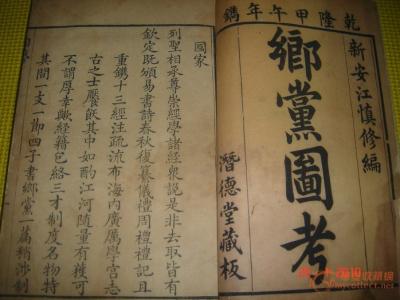 乾隆甲午年鐫
新安江慎修編
鄉黨圖考
潛德堂藏板
國家
列聖相承尊崇經學諸經衆說是非去取皆有
欽定既頒易書詩春秋復纂儀禮周禮禮記且
重鐫十三經注疏流布海內廣厲學宮志
古之士饜飫其中如酌江河隨量有獲可
不謂厚幸歟經籍包絡三才制度名物特
其間一支一節四子書鄉黨一篇稍涉制